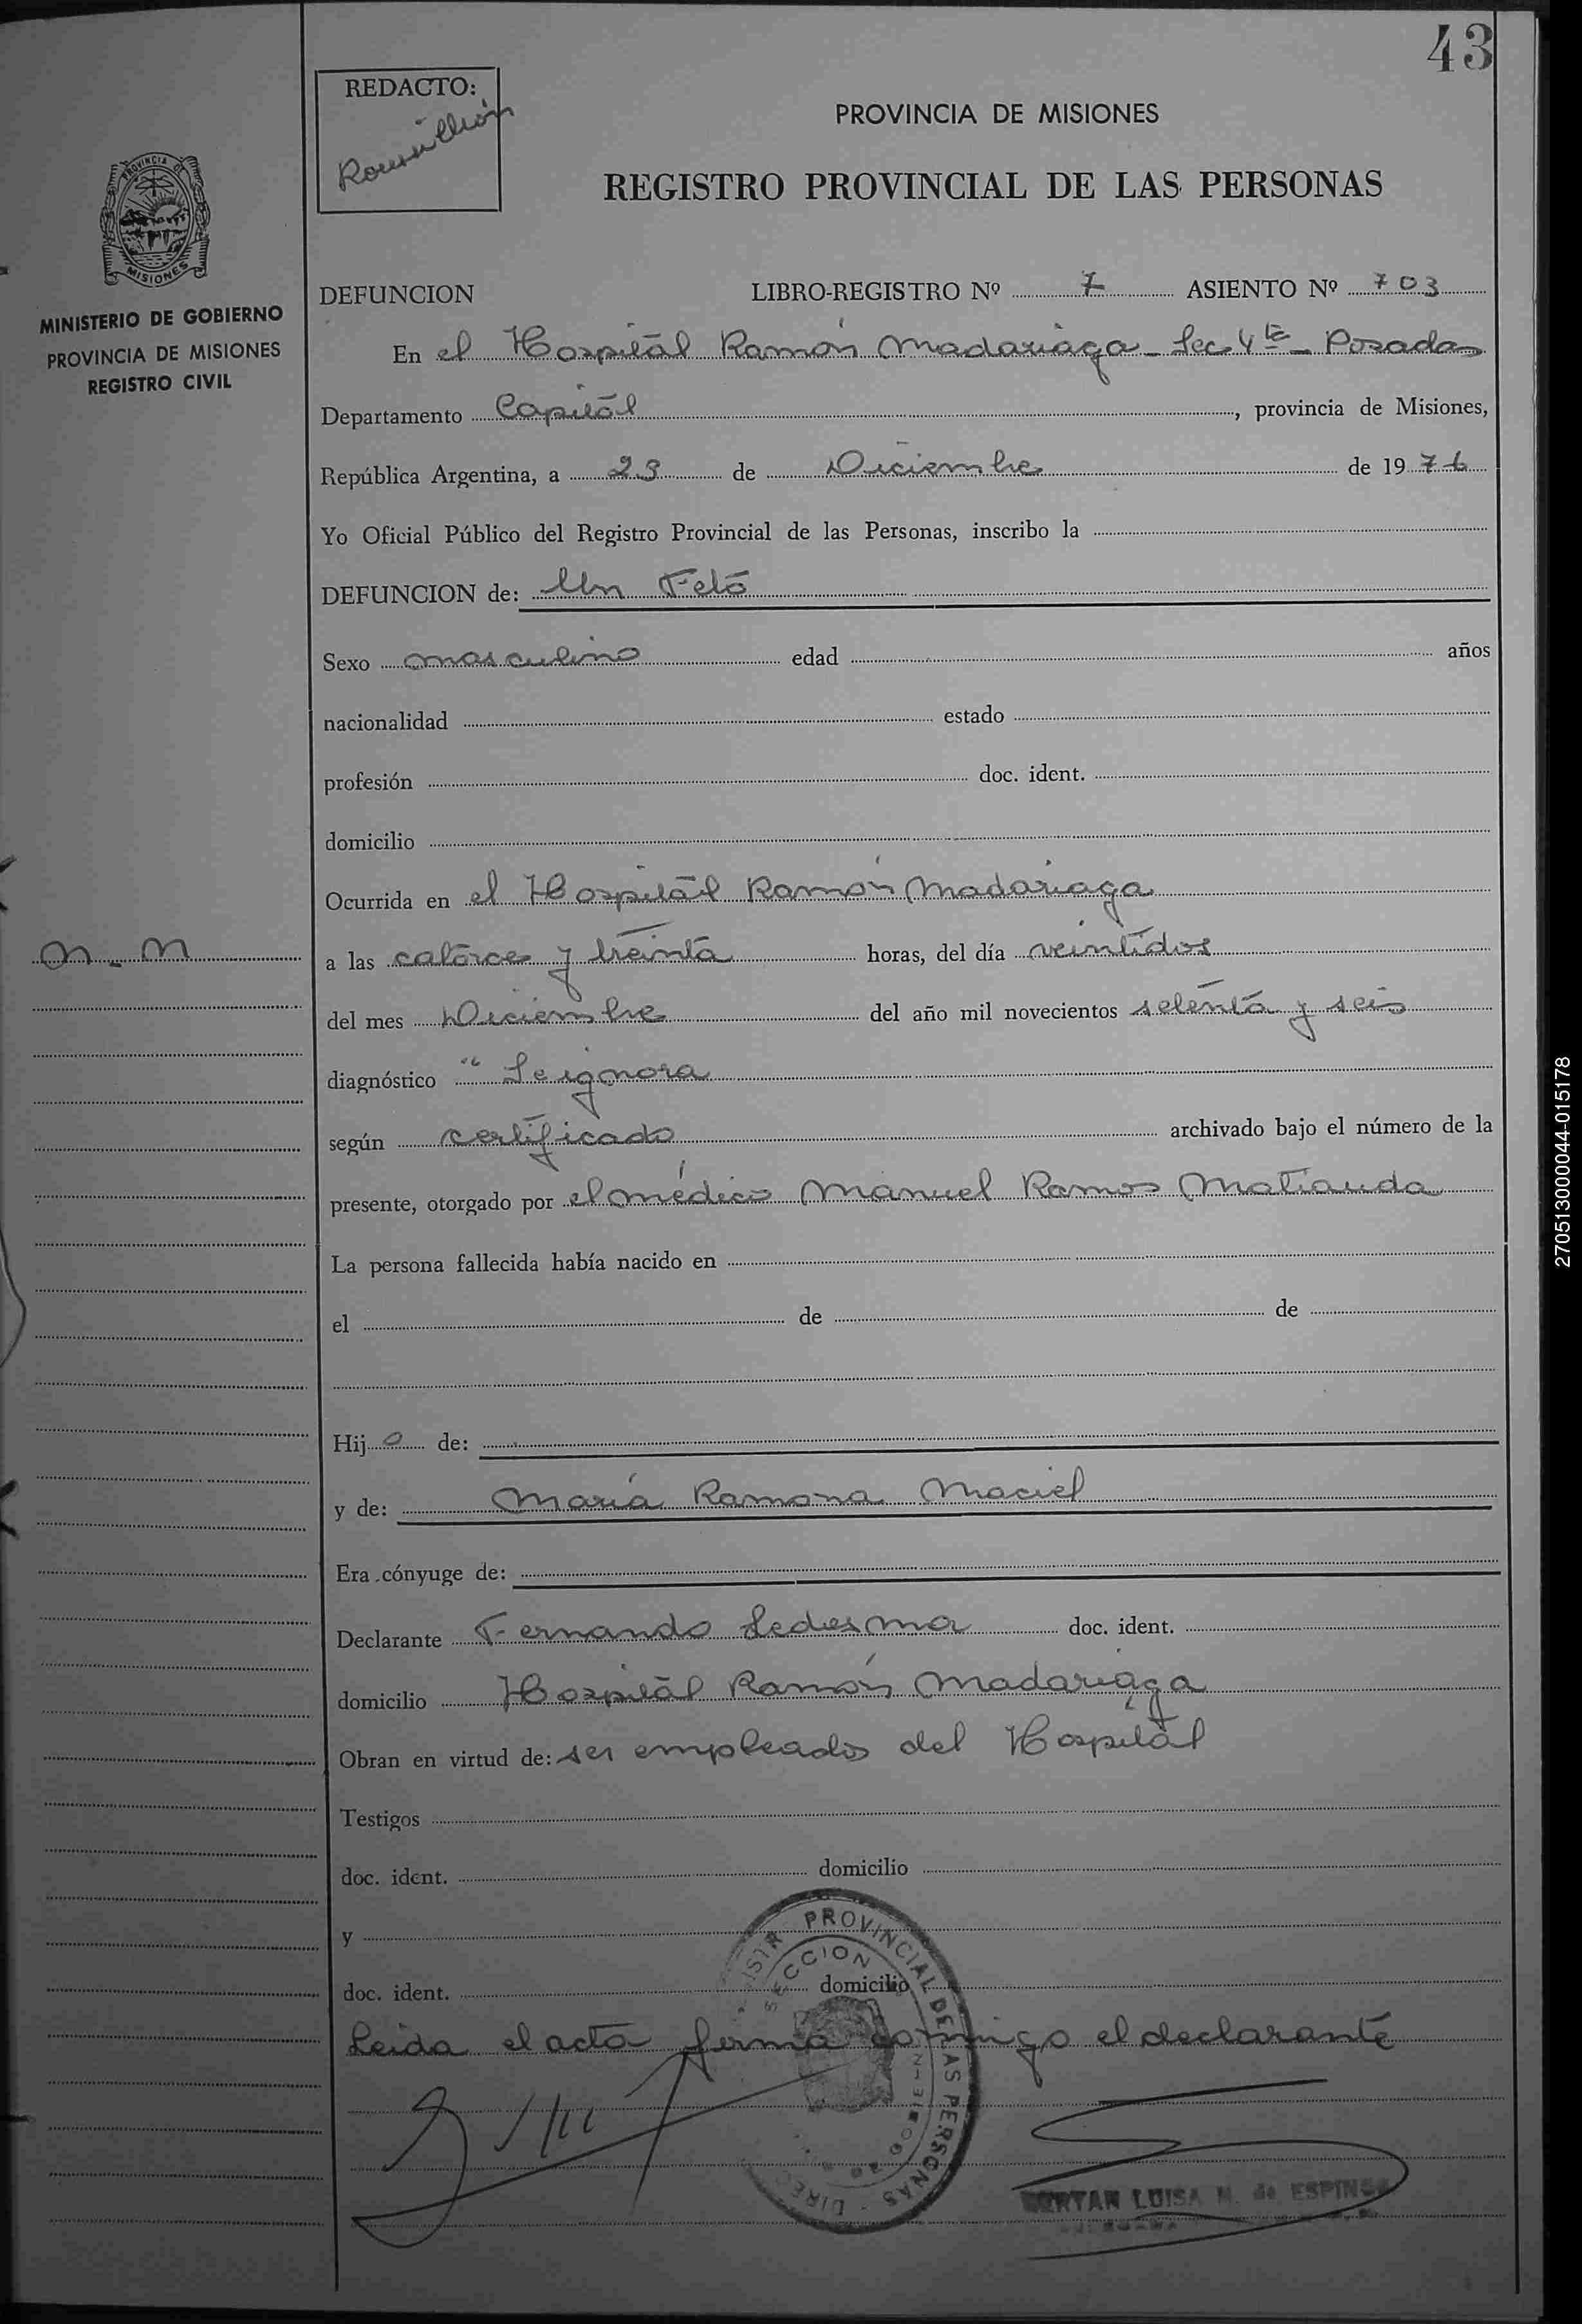 43
REDACTO:
PROVINCIA DE MISIONES
REGISTRO PROVINCIAL DE LAS PERSONAS
PROVINCIA DE
MISIONES
MINISTERIO DE GOBIERNO
PROVINCIA DE MISIONES
REGISTRO CIVIL
DEFUNCION LIBRO-REGISTRO Nº 7 ASIENTO Nº 703
En el Hospital Ramón Madariaga - Sec 4ta - Posadas
Departamento Capital, provincia de Misiones,
República Argentina, a 23 de Diciembre de 1976
Yo Oficial Público del Registro Provincial de las Personas, inscribo la
DEFUNCION de: Un Feto
Sexo masculino edad años
nacionalidad estado
profesión doc. ident.
domicilio
Ocurrida en el Hospital Ramón Madariaga
N.N
a las catorce y treinta horas, del día veintidos
del mes Diciembre del año mil novecientos setenta y seis
diagnóstico " Se ignora
según certificado archivado bajo el número de la
presente, otorgado por el médico Manuel Ramos Matiauda
La persona fallecida había nacido en
el de de
Hijo de:
y de: María Ramona Maciel
Era cónyuge de:
Declarante Fernando Ledesma doc. ident.
domicilio Hospital Ramón Madariaga
Obran en virtud de: ser empleado del Hospital
Testigos
doc. ident. domicilio
y
doc. ident. domicilio
Leida el acta firma comigo el declarante
PROVINCIAL DE LAS PERSONAS
SECCION
LUISA M. de ESPINO
270513000044-015178